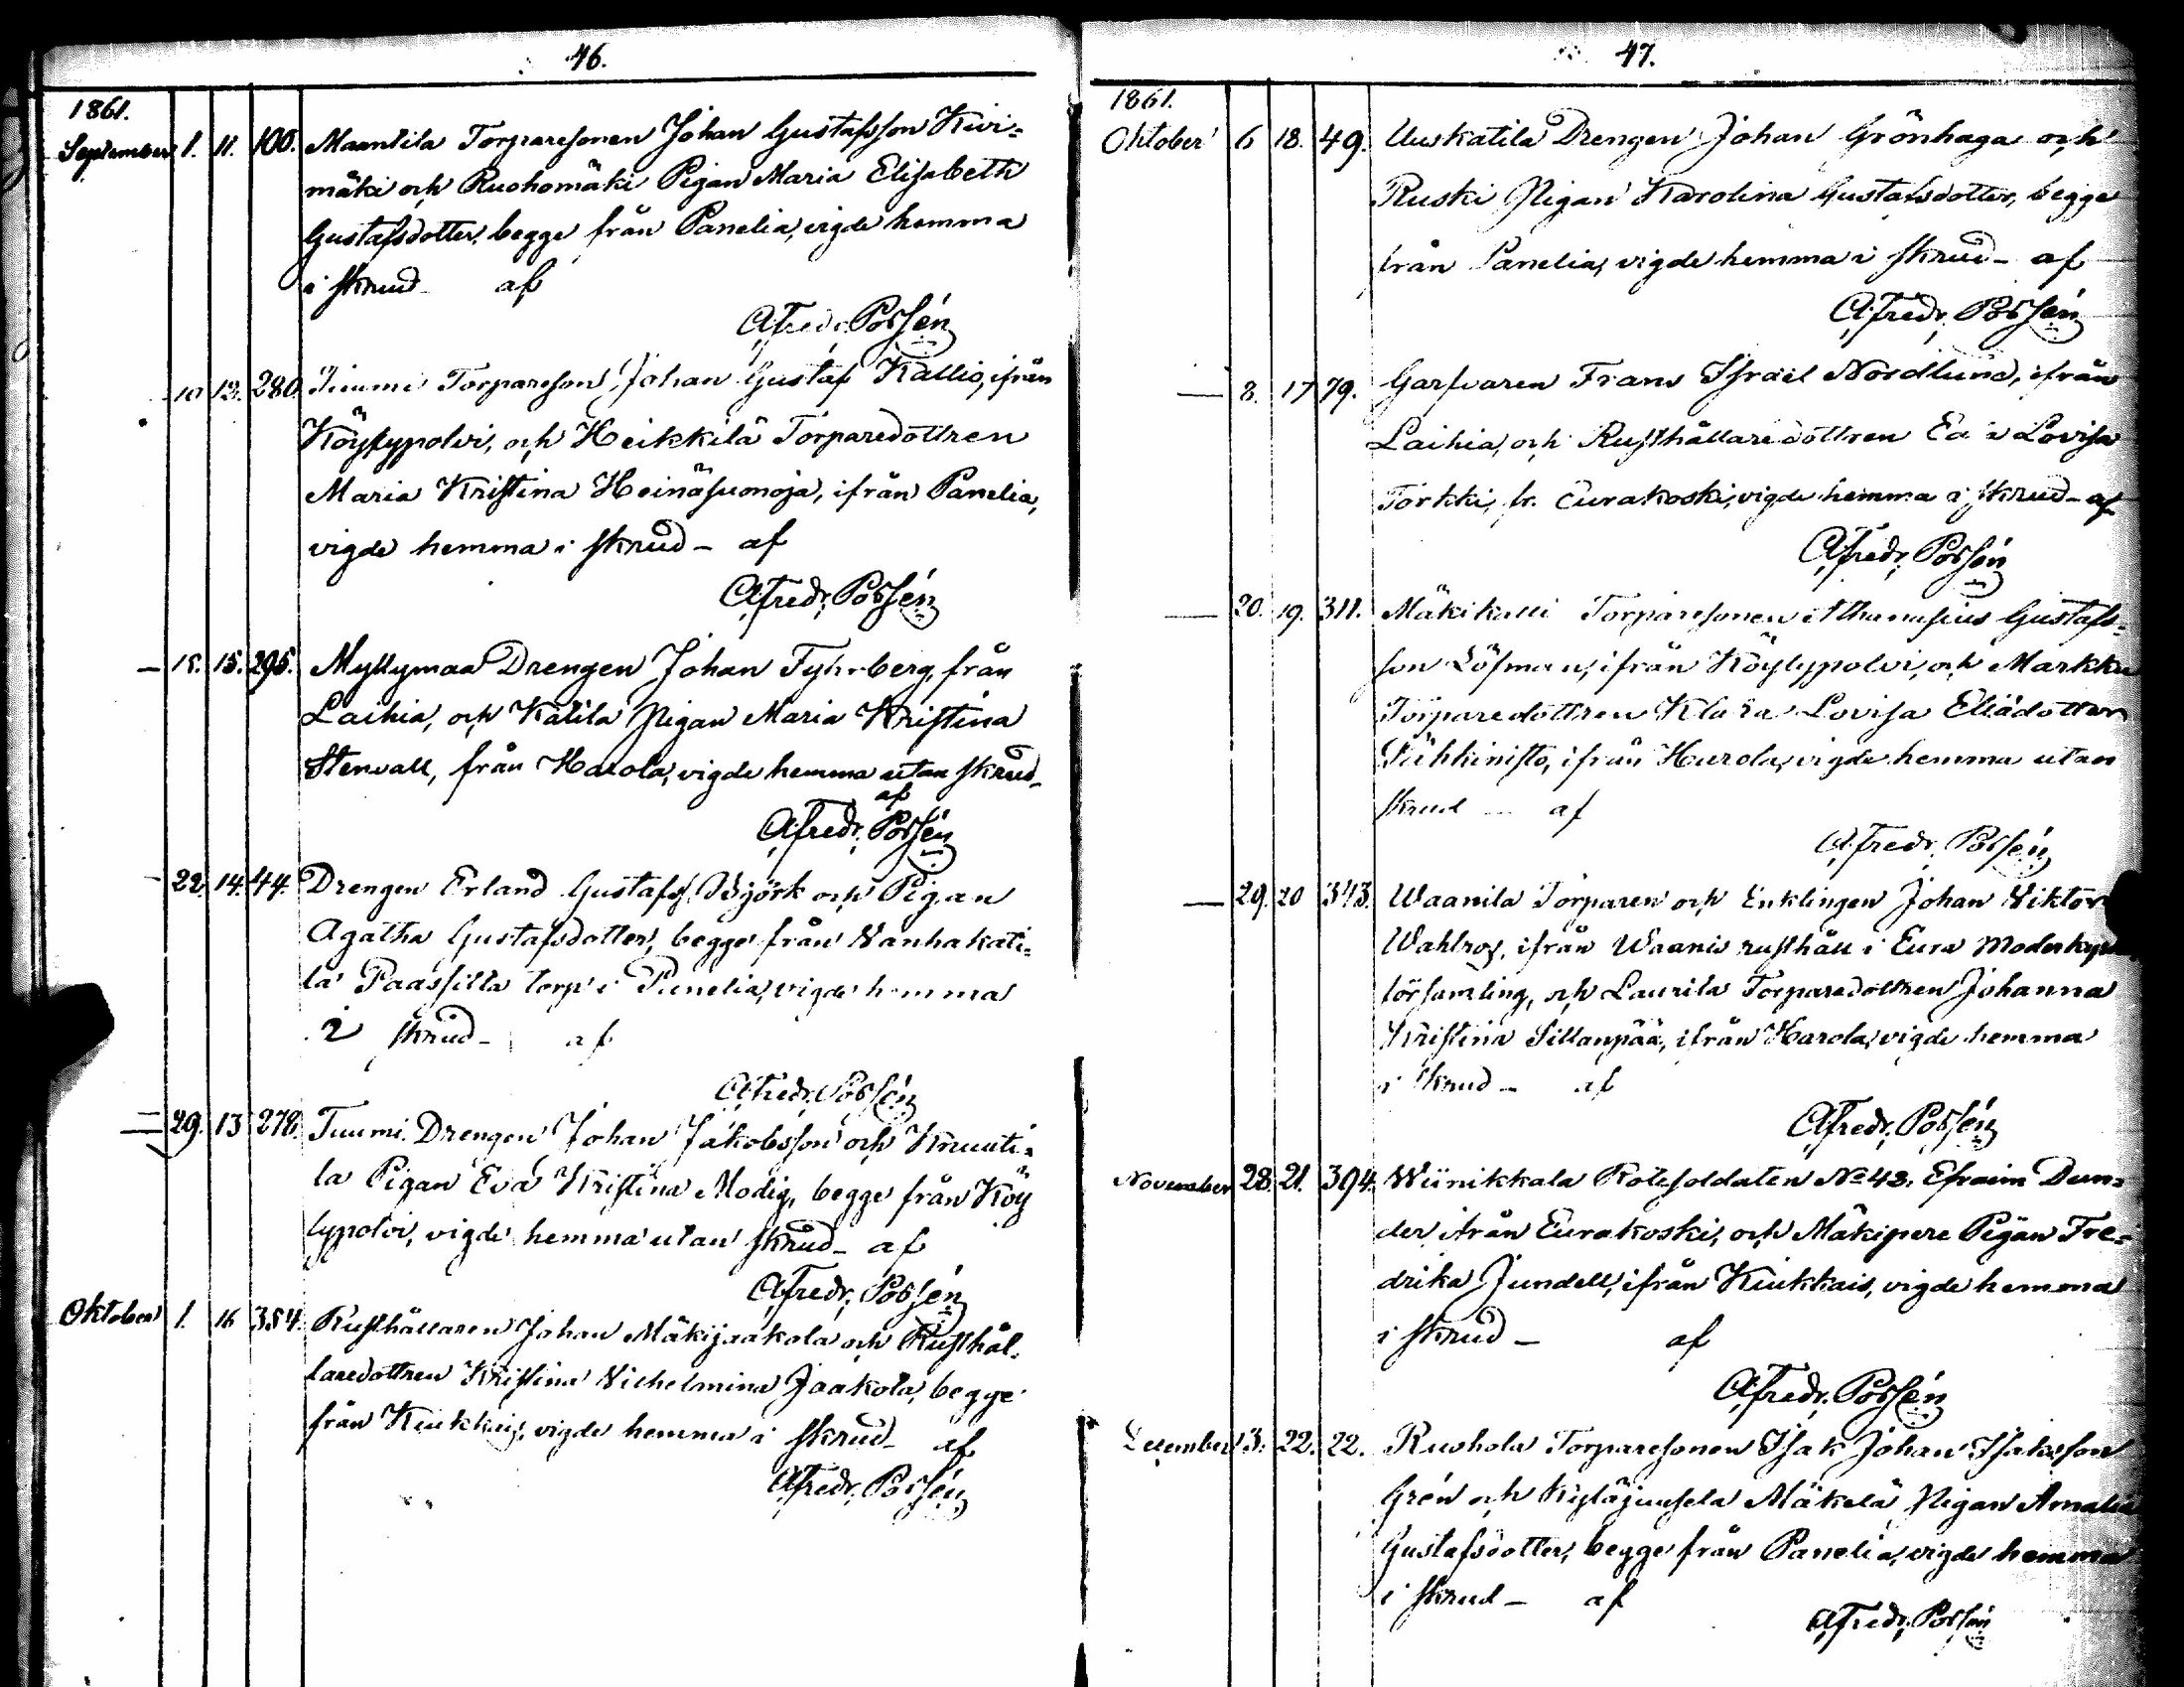 46.
1861.
September 1. 11. 100. Maantila Torparesonen Johan Gustafsson Kivi=
mäki och Ruohomäki Pigan Maria Elisabeth
Gustafsdotter, begge från Panelia, vigde hemma
i skrud af
A. Fredr. Possén
10 12. 280. Tuumi Torpareson Johan Gustaf Kallio, ifrån
Köylypolvi, och Heikkilä Torparedottren
Maria Kristina Heinäsuonoja, ifrån Panelia,
vigde hemma i skrud – af
A. Fredr. Possén
– 15. 15. 295. Myllymaa Drengen Johan Fyhrberg, från
Laihia, och Katila Pigan Maria Kristina
Stenvall, från Harola, vigde hemma utan skrud –
af
A. Fredr. Possén
– 22. 14. 44. Drengen Erland Gustafss. Björk och Pigan
Agatha Gustafsdotter, begge från Vanhakati=
la Paassilta torp i Panelia, vigde hemma
i skrud – af
A. Fredr. Possén
– 29. 13 278. Tuumi Drengen Johan Jakobsson och Knuuti=
la Pigan Eva Kristina Modig, begge från Köy
lypolvi, vigde hemma utan skrud – af
A. Fredr. Possén
Oktober 1. 16 354. Rusthållaren Johan Mäkijaakola och Rusthål=
laredottren Kristina Vilhelmina Jaakola, begge
från Kiukais, vigde hemma i skrud – af
A. Fredr. Possén
47.
1861.
Oktober 6 18. 49. Uuskatila Drengen Johan Grönhaga och
Ruski Pigan Karolina Gustafsdotter, begge
från Panelia, vigde hemma i skrud – af
A. Fredr. Possén
— 8. 17 79. Garfvaren Frans Israel Nordlund, ifrån
Laihia, och Rusthållaredottren Eva Lovisa
Torkki, fr. Eurakoski, vigde hemma i skrud – af
A. Fredr. Possén
— 20. 19. 311. Mäkikalli Torparesonen Athanasius Gustafs=
son Löfman, ifrån Köylypolvi, och Markku
Torparedottren Klara Lovisa Eliädotter
ifrån Harola, vigde hemma utan
skrud – af
A. Fredr. Possén
— 29. 20 343. Waanila Torparen och Enklingen Johan Viktor
Wahlros, ifrån Waanis rusthåll i Eura Moderkyrko
församling, och Laurila Torparedottren Johanna
Kristina Sillanpää, ifrån Harola, vigde hemma
i skrud – af
A. Fredr. Possén
November 28. 21. 394. Wiinikkala Rotesoldaten No 42. Efraim Dun=
der ifrån Eurakoski, och Mäkipere Pigan Fre=
drika Jundell, ifrån Kiukkais, vigde hemma
i skrud – af
A. Fredr. Possén
December 3. 22. 22. Ruohola Torparesonen Isak Johan Isaksson
Grén och Kyläjuusela Mäkelä Pigan Amalia
Gustafsdotter, begge från Panelia, vigde hemma
i skrud – af
A. Fredr. Possén